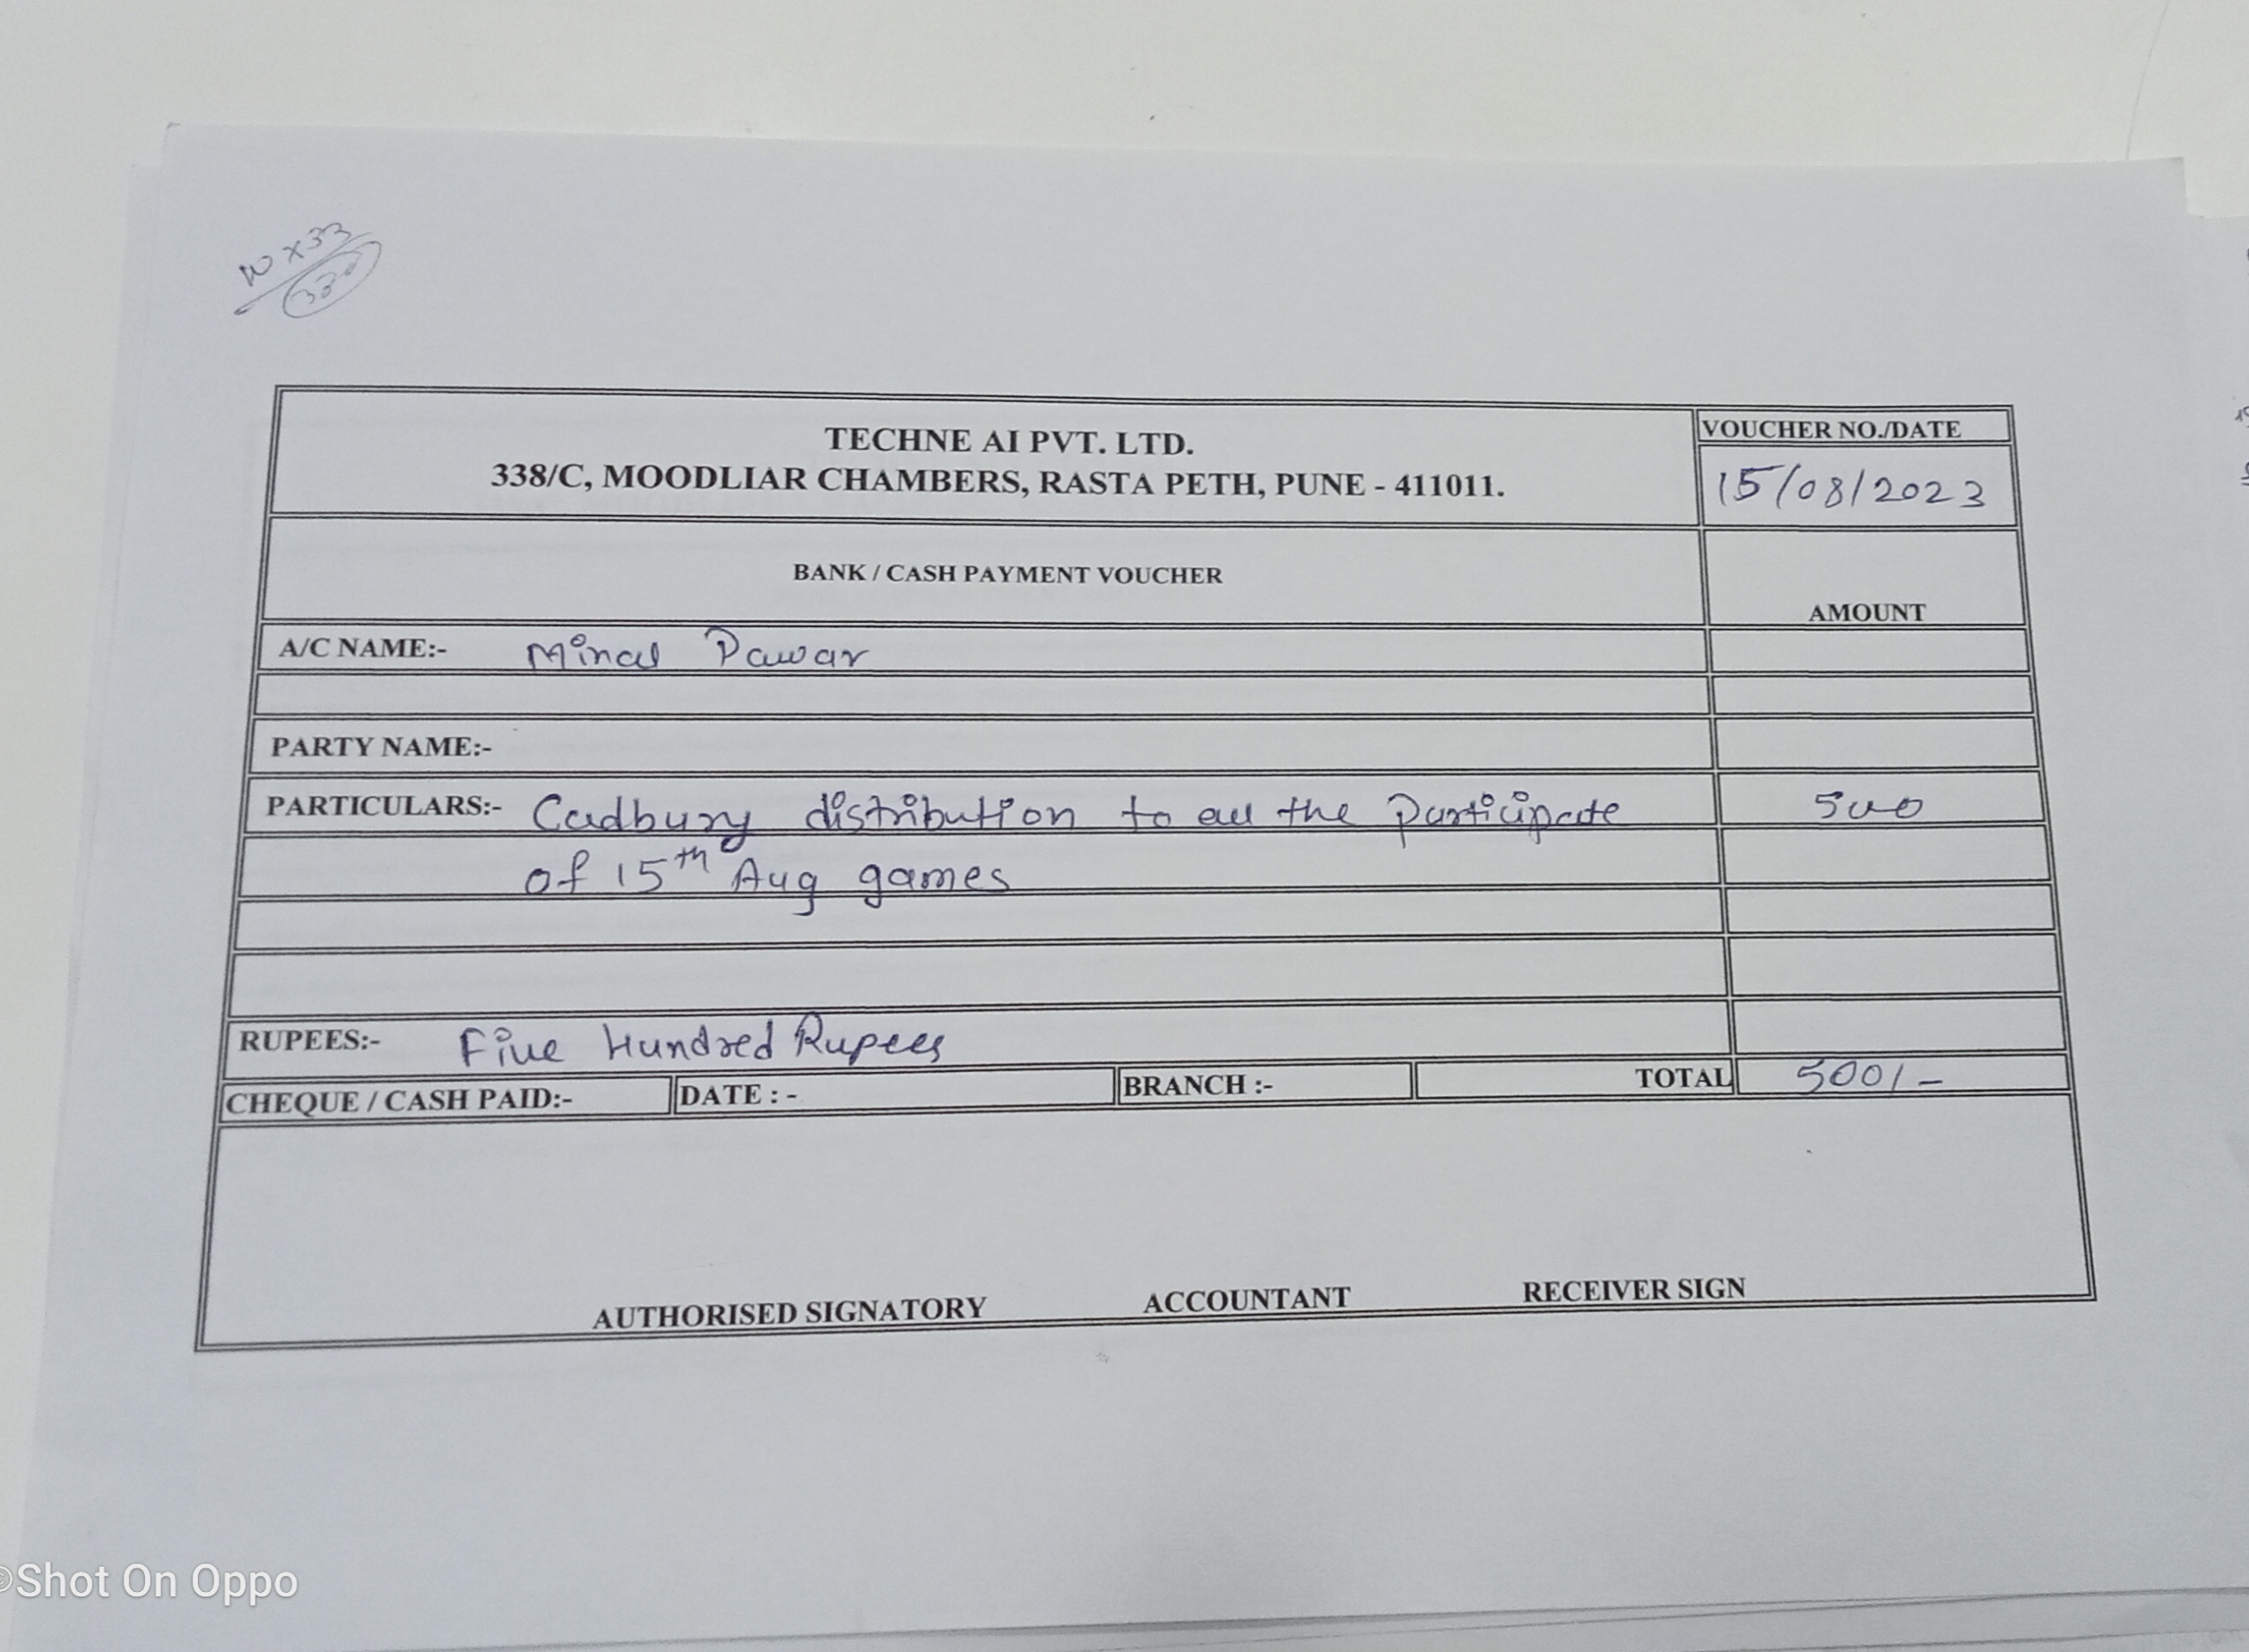 10 x 33
330
TECHNE AI PVT. LTD.
338/C, MOODLIAR CHAMBERS, RASTA PETH, PUNE - 411011.
VOUCHER NO./DATE
15/08/2023
BANK / CASH PAYMENT VOUCHER
AMOUNT
A/C NAME:- Minal Pawar
PARTY NAME:-
PARTICULARS:- Cadbury distribution to all the Participate 500
of 15th Aug games
RUPEES:- Five Hundred Rupees
CHEQUE / CASH PAID:- DATE : - BRANCH :- TOTAL 500/-
AUTHORISED SIGNATORY ACCOUNTANT RECEIVER SIGN
©Shot On Oppo